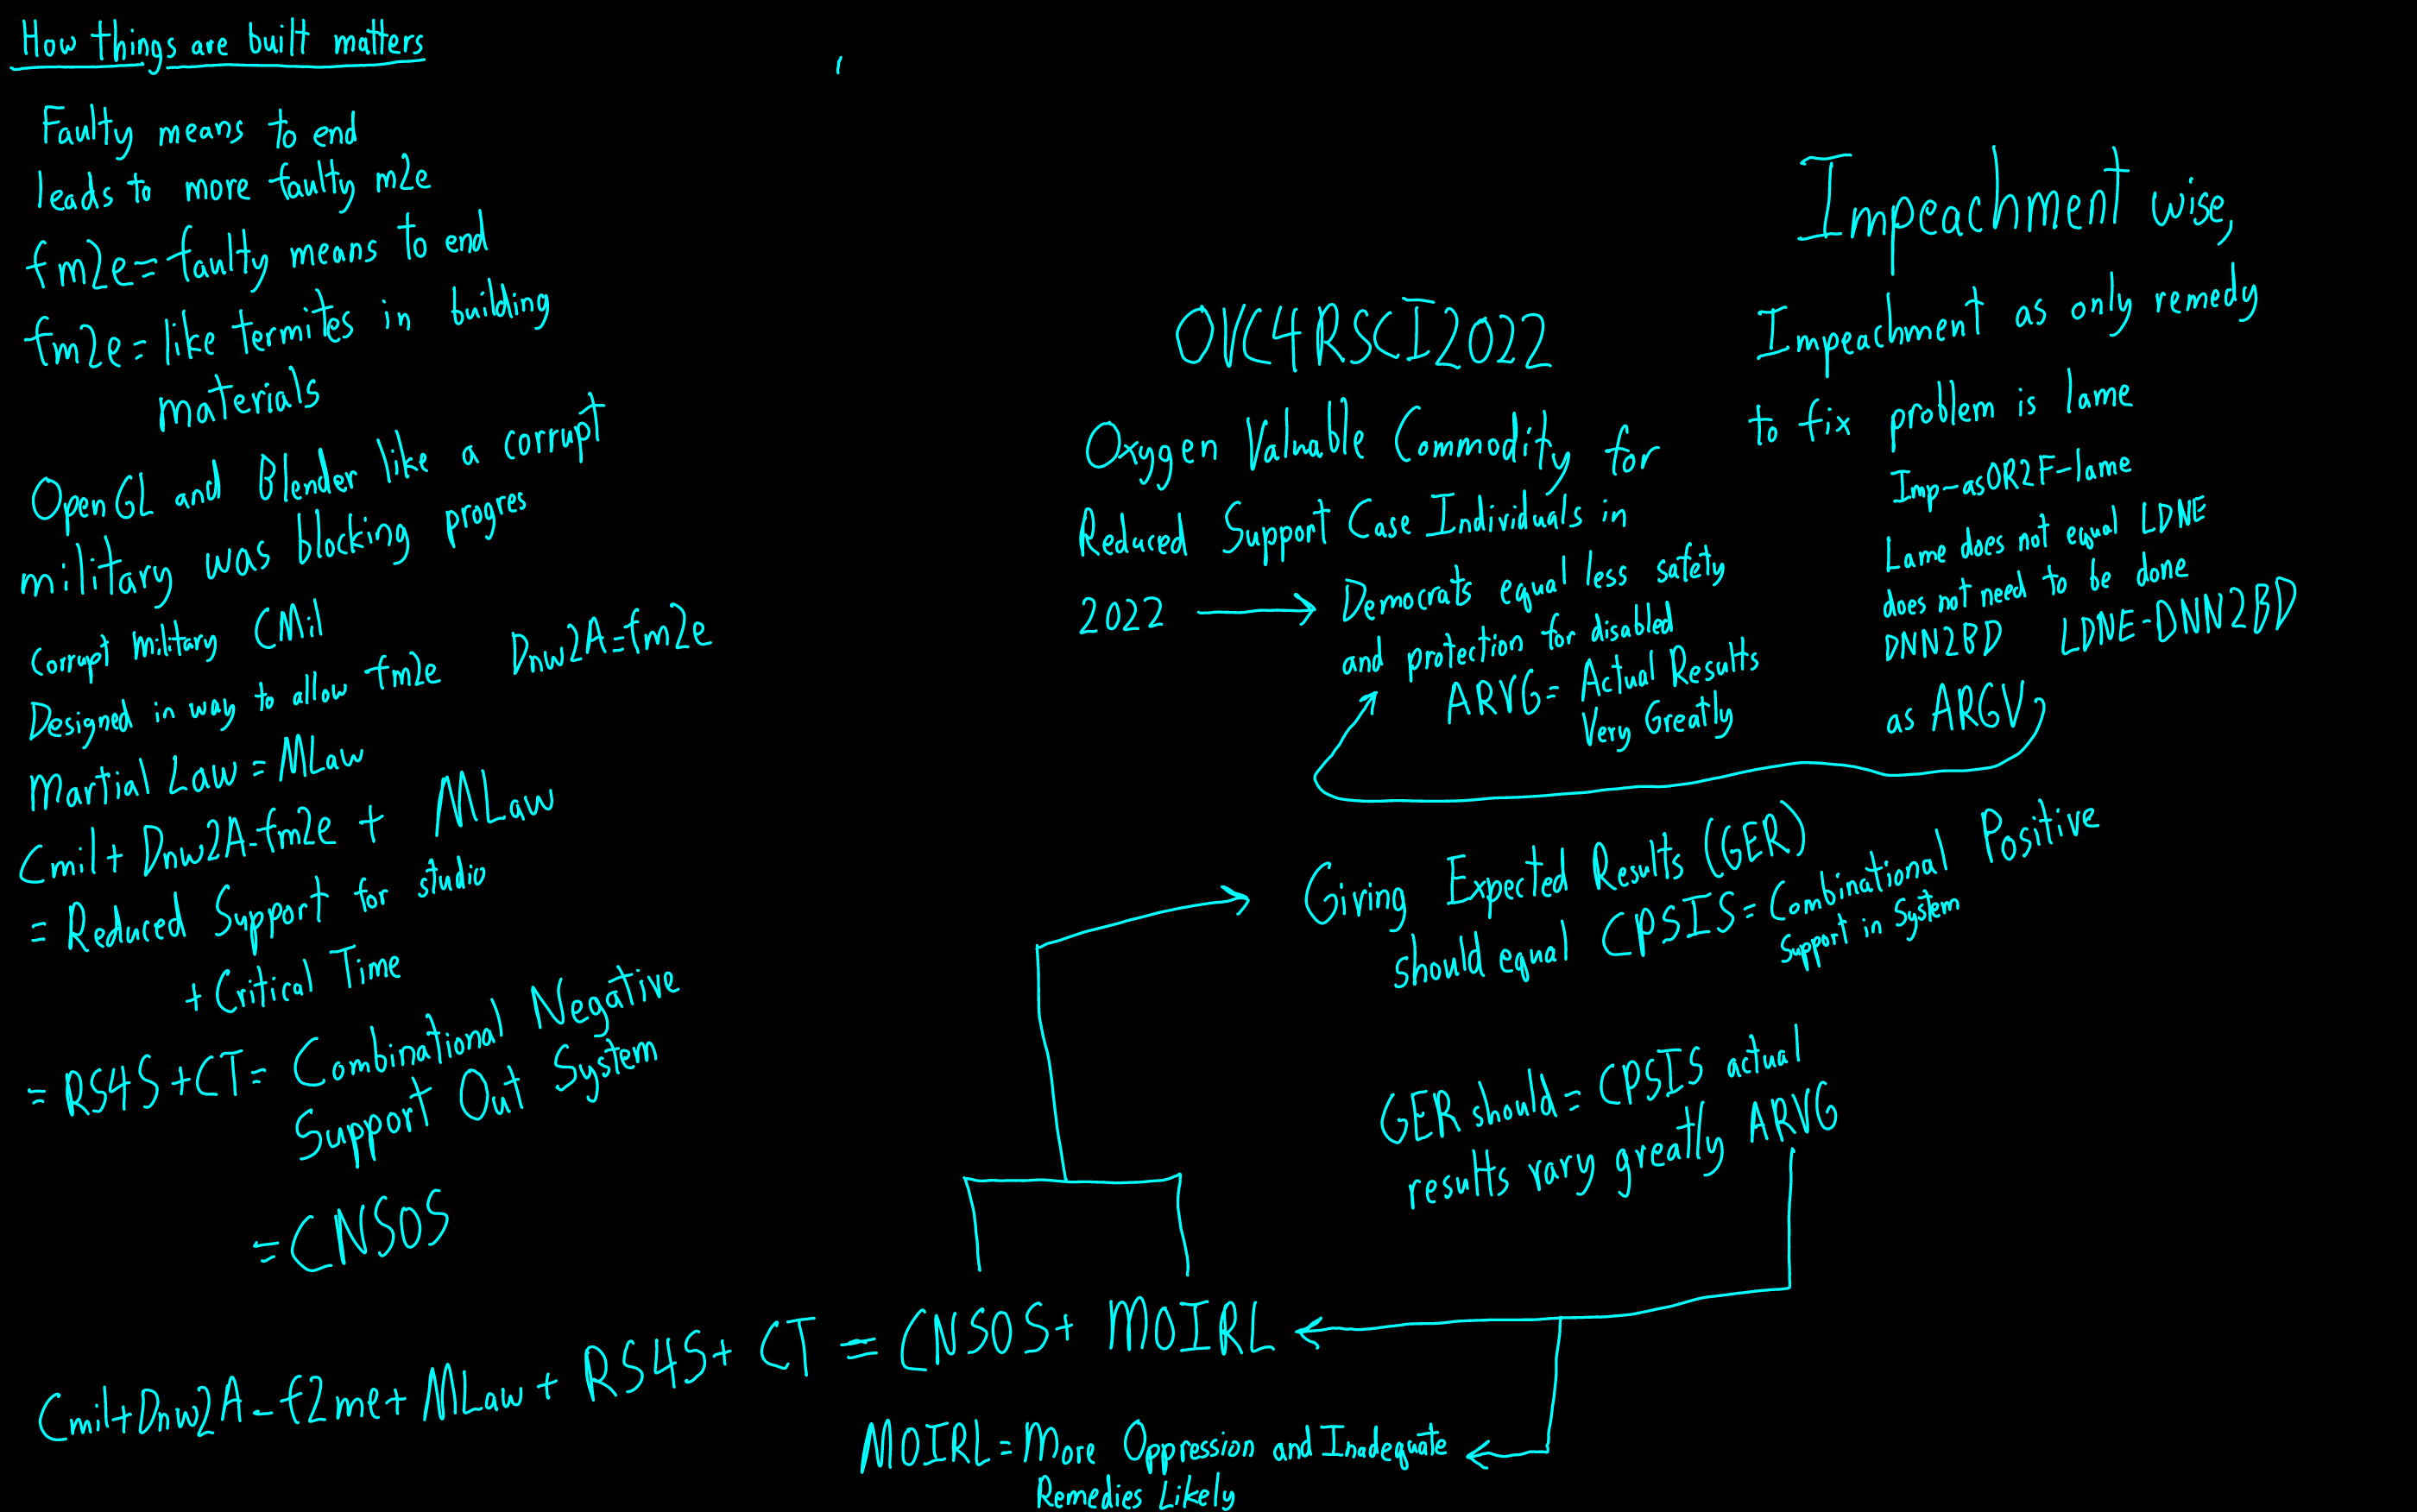 How things are built matters
Faulty means to end
leads to more faulty m2e
fm2e=faulty means to end
fm2e= like termites in building
materials
OpenGL and Blender like a corrupt
military was blocking progres
Corrupt Military CMil
Designed in way to allow fm2e Dnw2A=fm2e
Martial Law = MLaw
Cmil+ Dnw2A-fm2e + MLaw
= Reduced Support for studio
+ Critical Time
= RS4S+CT= Combinational Negative
Support Out System
=CNSOS
Cmil+Dnw2A-f2me+ MLaw+ RS4S+ CT = CNSOS+ MOIRL
MOIRL= More Oppression and Inadequate
Remedies Likely
OVC4RSCI2022
Oxygen Valuable Commodity for
Reduced Support Case Individuals in
2022 → Democrats equal less safety
and protection for disabled
ARVG= Actual Results
Very Greatly
Giving Expected Results (GER)
should equal CPSIS= Combinational Positive
Support in System
GER should= CPSIS actual
results vary greatly ARVG
Impeachment wise,
Impeachment as only remedy
to fix problem is lame
Imp-asOR2F-lame
Lame does not equal LDNE
does not need to be done
DNN2BD LDNE-DNN2BD
as ARGV